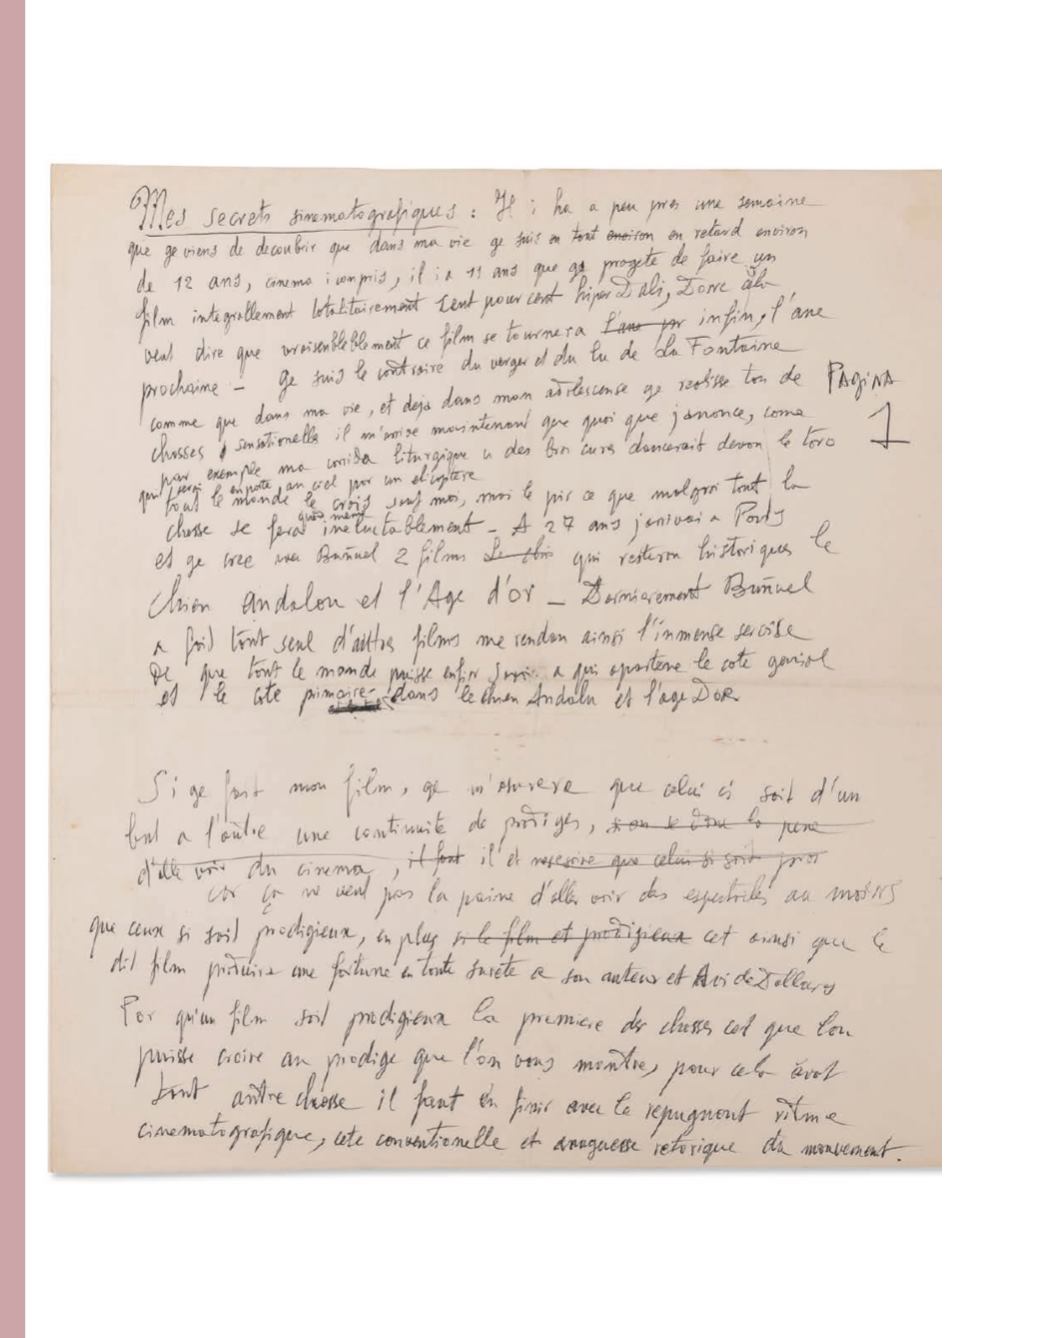 Mes secrets sinematografiques : Il i ha a peu pres une semaine
que ge viens de decoubrir que dans ma vie ge suis en tout environ en retard environ
de 12 ans, cinema i compris, il i a 11 ans que ge progete de faire un
film integrallement totalitairement cent pour cent hiper Dali, Donc cela
veut dire que vraisenbleblement ce film se tournera l'ane pr infin, l'ane
prochaine – ge suis le contraire du verger et du lu de La Fontaine
comme que dans ma vie, et deja dans mon adolescense ge realisse ton de
PAGINA
1
chosses sensationelle il m'arive maintenant que quoi que j'anonce, come
par exemple ma corrida liturgique u des bro cures dancerait devan le toro
qui serai enporte au ciel par un elicoptere
tous le monde le crois sauf moi, moi le pir ce que malgre tout la
chosse se fera ineluctablement – A 27 ans j'arivai a Paris
et ge cree avec Buñuel 2 films qui resteron historiques le
Chien andalou et l'Age d'or – Dernierement Buñuel
a fait tout seul d'autres films me rendan ainsi l'inmense servise
De que tout le monde puisse enfin savoir a qui apartene le cote genial
et le cote primaire dans le chien Andalu et l'age DoR
Si ge fait mon film, ge m'asurere que celui ci soit d'un
but a l'autre une continuite de prodiges, si on se done la pene
d'alle voir du cinema, il faut il et nesesire que celui si soit
car ça ne veut pas la paine d'alle voir des espectacles au moins
que ceux si soit prodigieux, en plus si le film et prodigieux cet ainsi que le
dit film produira une fortune en toute surete a son auteur et Avi de Dollars
Por qu'un film soit prodigieux la premiere des chosses cet que lon
puisse croire au prodige que l'on vous montre, pour cela avat
tout autre chosse il faut en finir avec le repugnant ritme
cinematografique, cete conventionelle et retorique du mouvement.